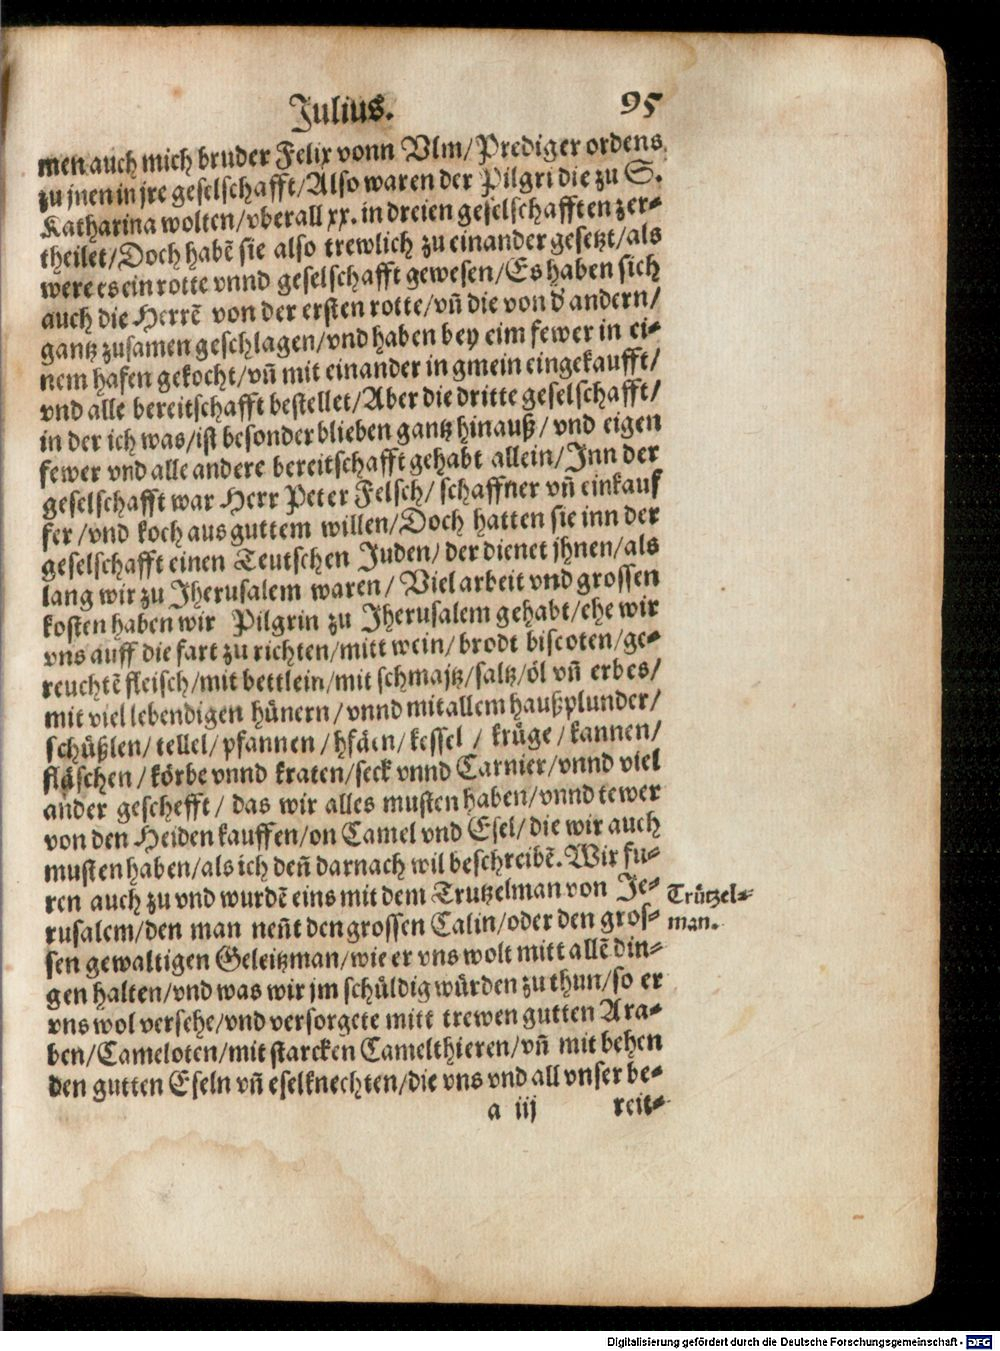 Julius. 95
men auch mich bruder Felix vonn Vlm/Prediger ordens
zu jnen in jre geselschafft/Also waren der Pilgri die zu S.
Katharina wolten/vberall xx. in dreien geselschafften zer-
theilet/Doch habẽ sie also trewlich zu einander gesetzt/als
were es ein rotte vnnd geselschafft gewesen/Es haben sich
auch die Herrẽ von der ersten rotte/vñ die von d' andern/
gantz zusamen geschlagen/vnd haben bey eim fewer in ei-
nem hafen gekocht/vñ mit einander in gmein eingekaufft/
vnd alle bereitschafft bestellet/Aber die dritte geselschafft/
in der ich was/ist besonder blieben gantz hinauß/vnd eigen
fewer vnd alle andere bereitschafft gehabt allein/Inn der
geselschafft war Herr Peter Felsch/schaffner vñ einkauf
fer/vnd koch aus guttem willen/Doch hatten sie inn der
geselschafft einen Teutschen Juden/der dienet jhnen/als
lang wir zu Jherusalem waren/Viel arbeit vnd grossen
kosten haben wir Pilgrin zu Jherusalem gehabt/ehe wir
vns auff die fart zu richten/mitt wein/brodt biscoten/ge-
reuchtẽ fleisch/mit bettlein/mit schmajtz/saltz/öl vñ erbes/
mit viel lebendigen hünern/vnnd mit allem haußplunder/
schüßlen/tellel/pfannen/hfäen/kessel/krüge/kannen/
fläschen/körbe vnnd kraten/seck vnnd Carnier/vnnd viel
ander geschefft/das wir alles musten haben/vnnd tewer
von den Heiden kauffen/on Camel vnd Esel/die wir auch
musten haben/als ich deñ darnach wil beschreibẽ. Wir fu-
ren auch zu vnd wurdẽ eins mit dem Trutzelman von Je-
rusalem/den man neñt den grossen Calin/oder den gros-
sen gewaltigen Geleitzman/wie er vns wolt mitt allẽ din-
gen halten/vnd was wir jm schüldig würden zu thun/so er
vns wol versehe/vnd versorgete mitt trewen gutten Ara-
ben/Cameloten/mit starcken Camelthieren/vñ mit behen
den gutten Eseln vñ eselknechten/die vns vnd all vnser be-
a iij reit-
Trützel-
man.
Digitalisierung gefördert durch die Deutsche Forschungsgemeinschaft - DFG